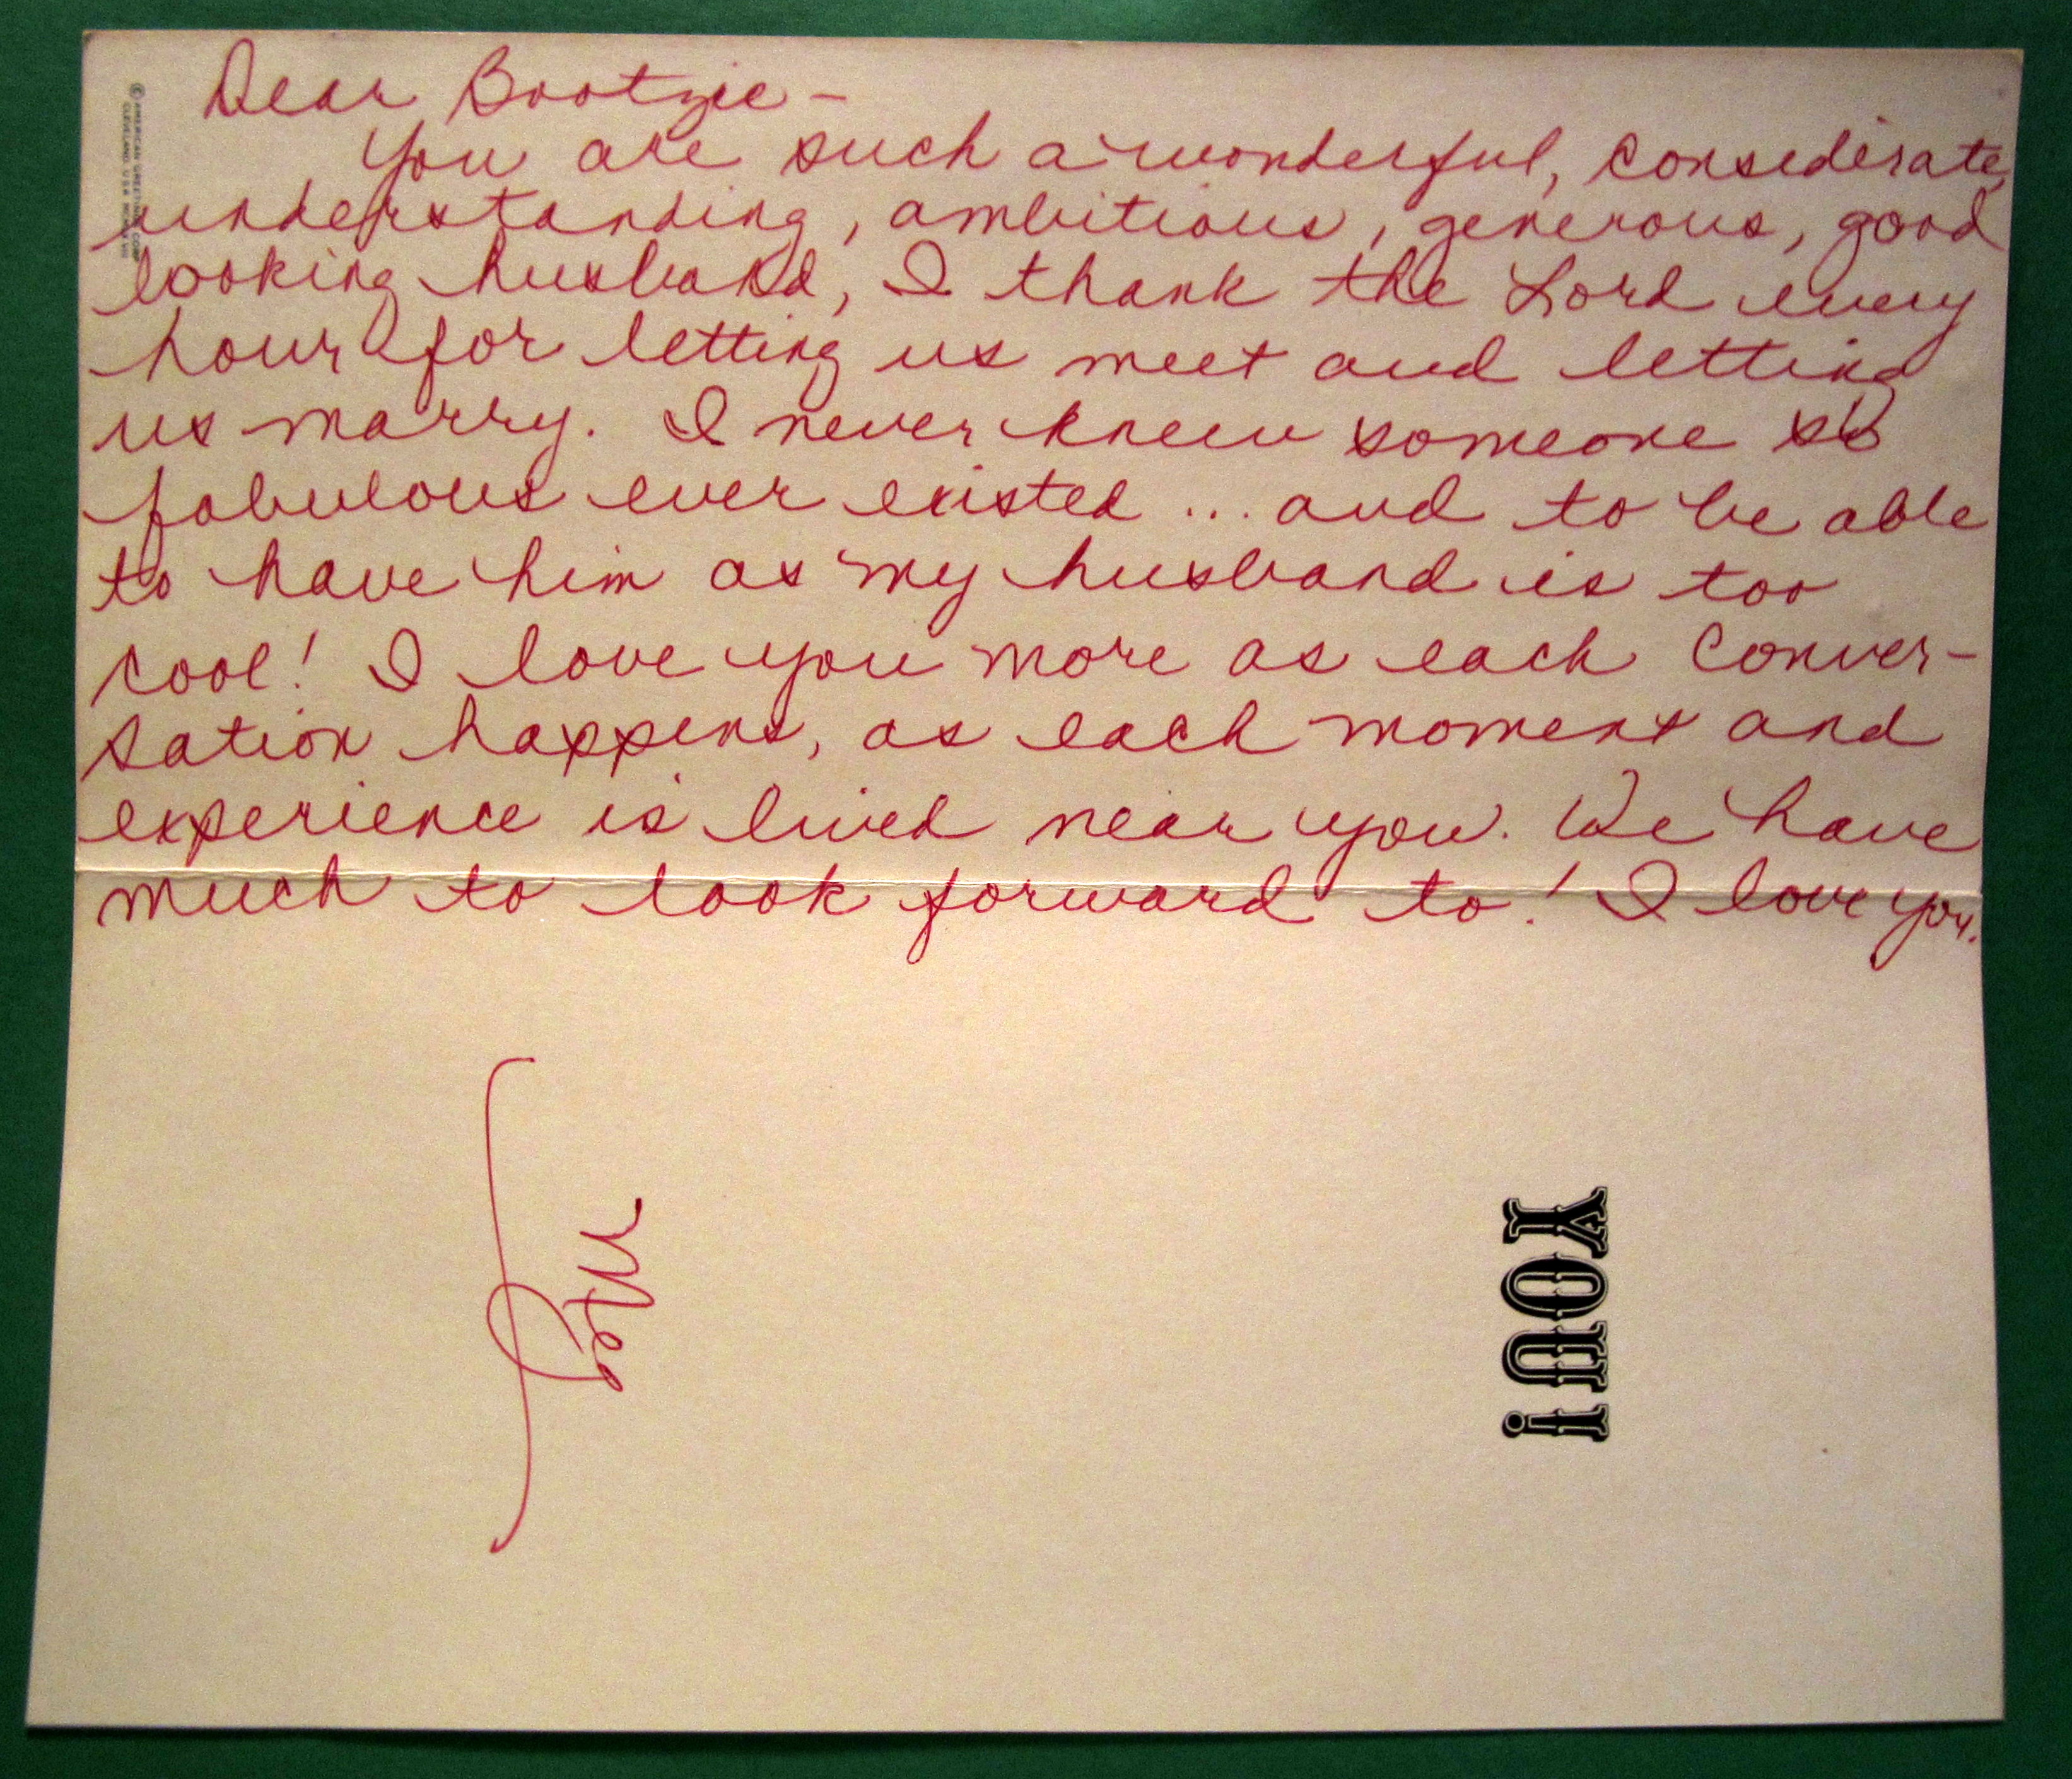 Dear Bootzie -
You are such a wonderful, considerate,
understanding, ambitious, generous, good
looking husband, I thank the Lord every
hour for letting us meet and letting
us marry. I never knew someone so
fabulous ever existed ... and to be able
to have him as my husband is too
cool! I love you more as each conver-
sation happens, as each moment and
experience is lived near you. We have
much to look forward to! I love you.
YOU!
© AMERICAN GREETINGS CORP.
CLEVELAND USA